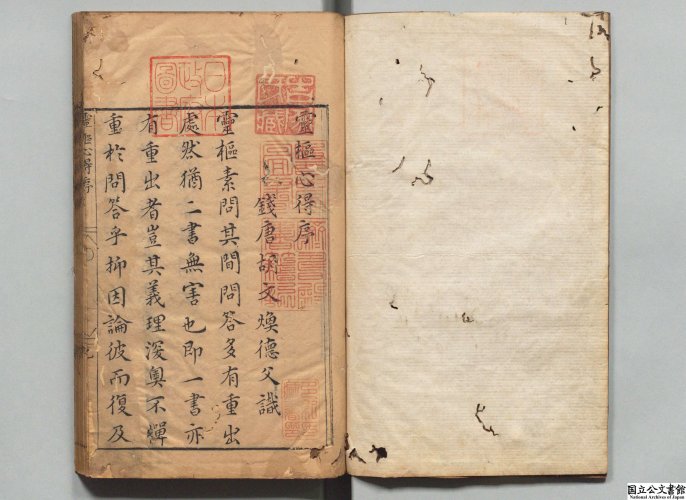 靈樞心得序
錢唐胡文煥德父識
靈樞素問其間問答多有重出
處然猶二書無害也即一書亦
有重出者豈其義理深奧不憚
重於問答乎抑因論彼而復及
靈樞心得序
日本
政府
圖書
国立公文書館
National Archives of Japan